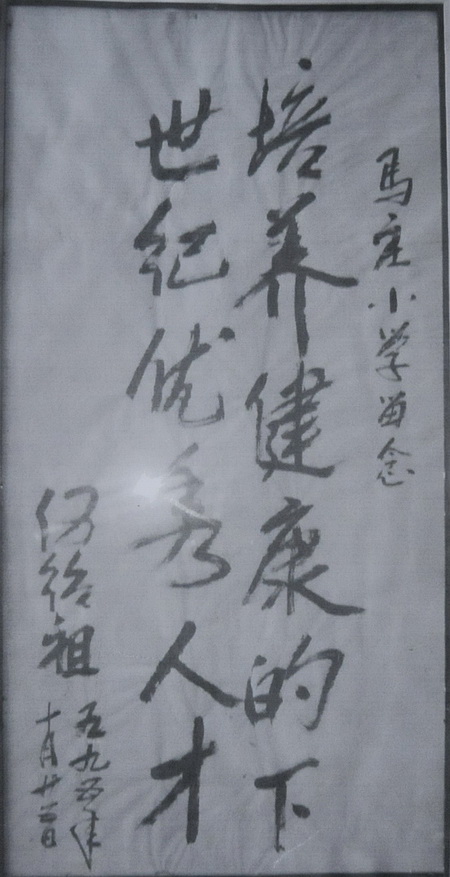 馬庄小学留念
培养健康的下
世纪优秀人才
伍绍祖
一九九五年
十月廿一日